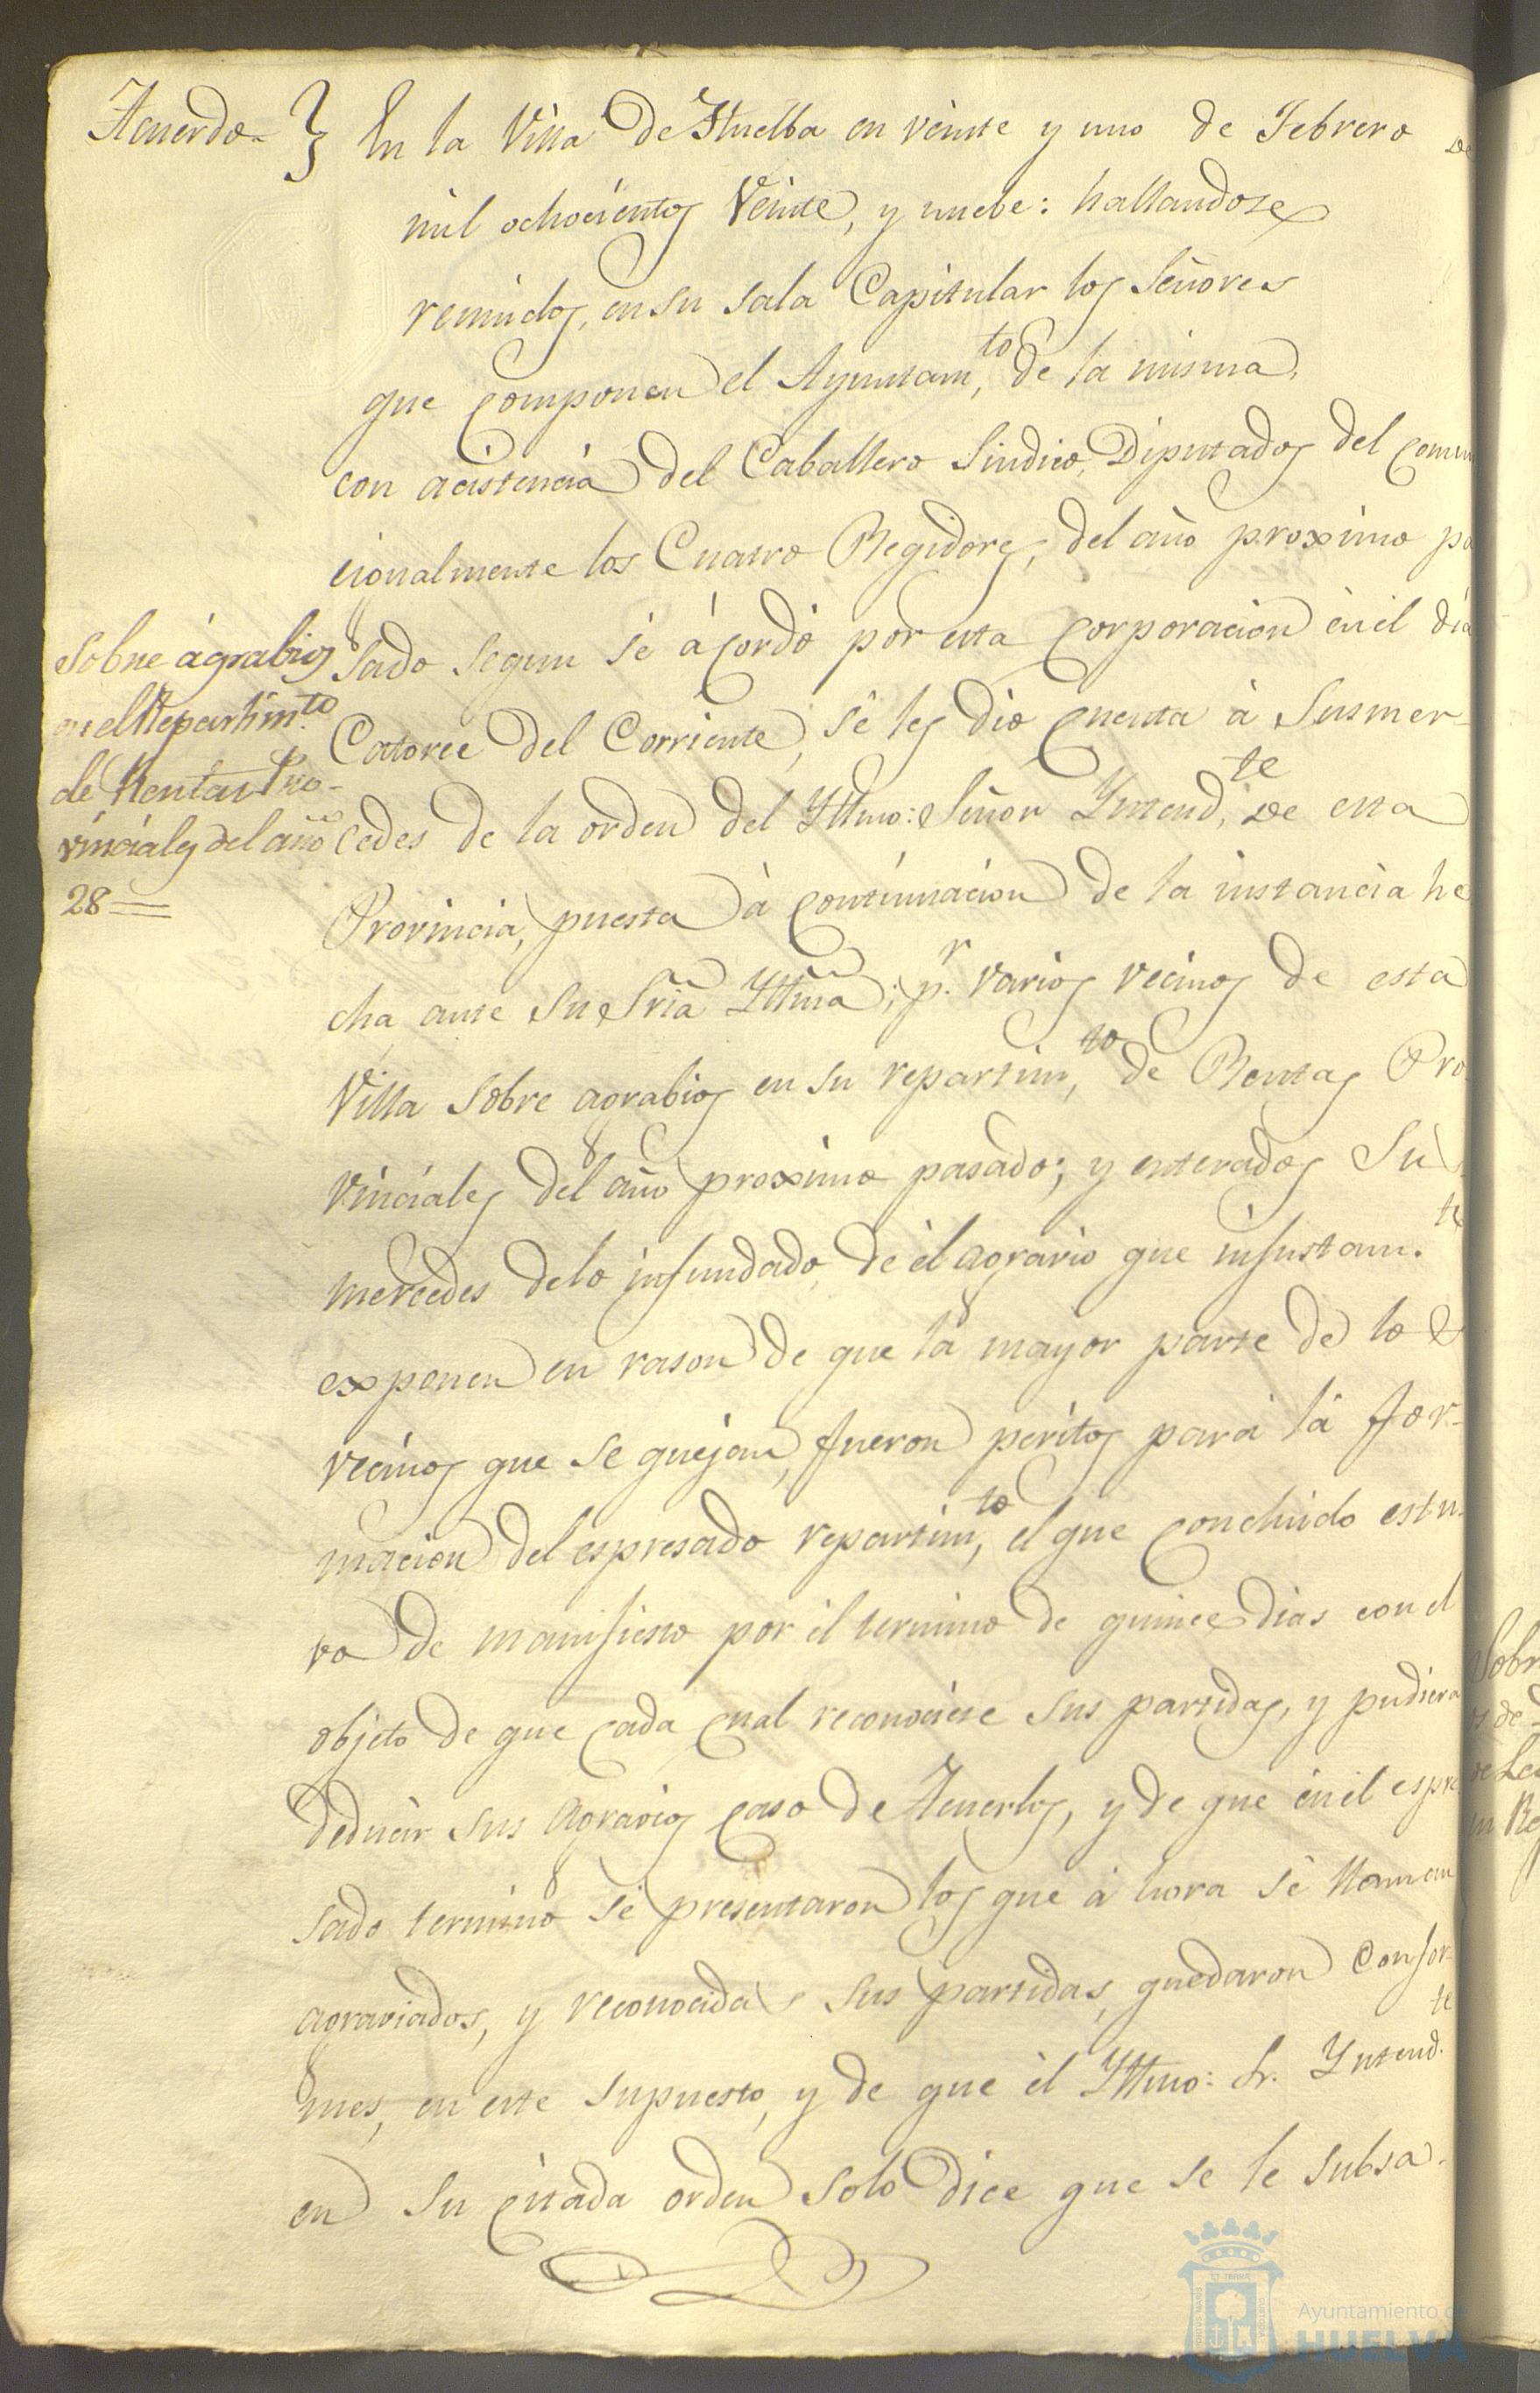 Acuerdo } En la Villa de Huelba en veinte y uno de Febrero de
mil ochocientos veinte, y nuebe: hallandose
reunidos, en su sala Capitular los Señores
que componen el Ayuntam.to de la misma,
con acistencia del Caballero Sindico, Diputados del comun
cionalmente los Cuatro Regidores, del año proximo pa
sado segun sé ácordó por esta corporacion en el dia
Catorce del Corriente, sé les dio cuenta á Susmer-
cedes de la orden del Yllmo: Señor Yntend.te de esta
Provincia, puesta á continuacion de la instancia he
cha ante Su Sria Yllma; p.r varios vecinos de esta
Villa sobre agrabios en su repartim.to de Rentas Pro
vinciales del año proximo pasado; y enterados Su
mercedes delo infundado, de él agravio que injustam.te
exponen en rason de que la mayor parte de los
vecinos que se quejan, fueron peritos para la for-
macion del espresado repartim.to, el que concluido estu-
vo de manifiesto por él termino de quince dias con el
objeto de que cada cual reconociese sus partidas, y pudiera
deducir sus agravios caso de tenerlos, y de que en él espre
sado termino sé presentaron los que á hora sé llaman
agraviados, y reconocidas sus partidas, quedaron confor-
mes, en este supuesto, y de que él Yllmo: Sr. Yntend.te
en su citada orden solo dice que se le subsa-
Sobre ágrabios
en el Repartim.to
de Rentas Pro-
vinciales del año
28=
Sobr
Ayuntamiento de
HUELVA